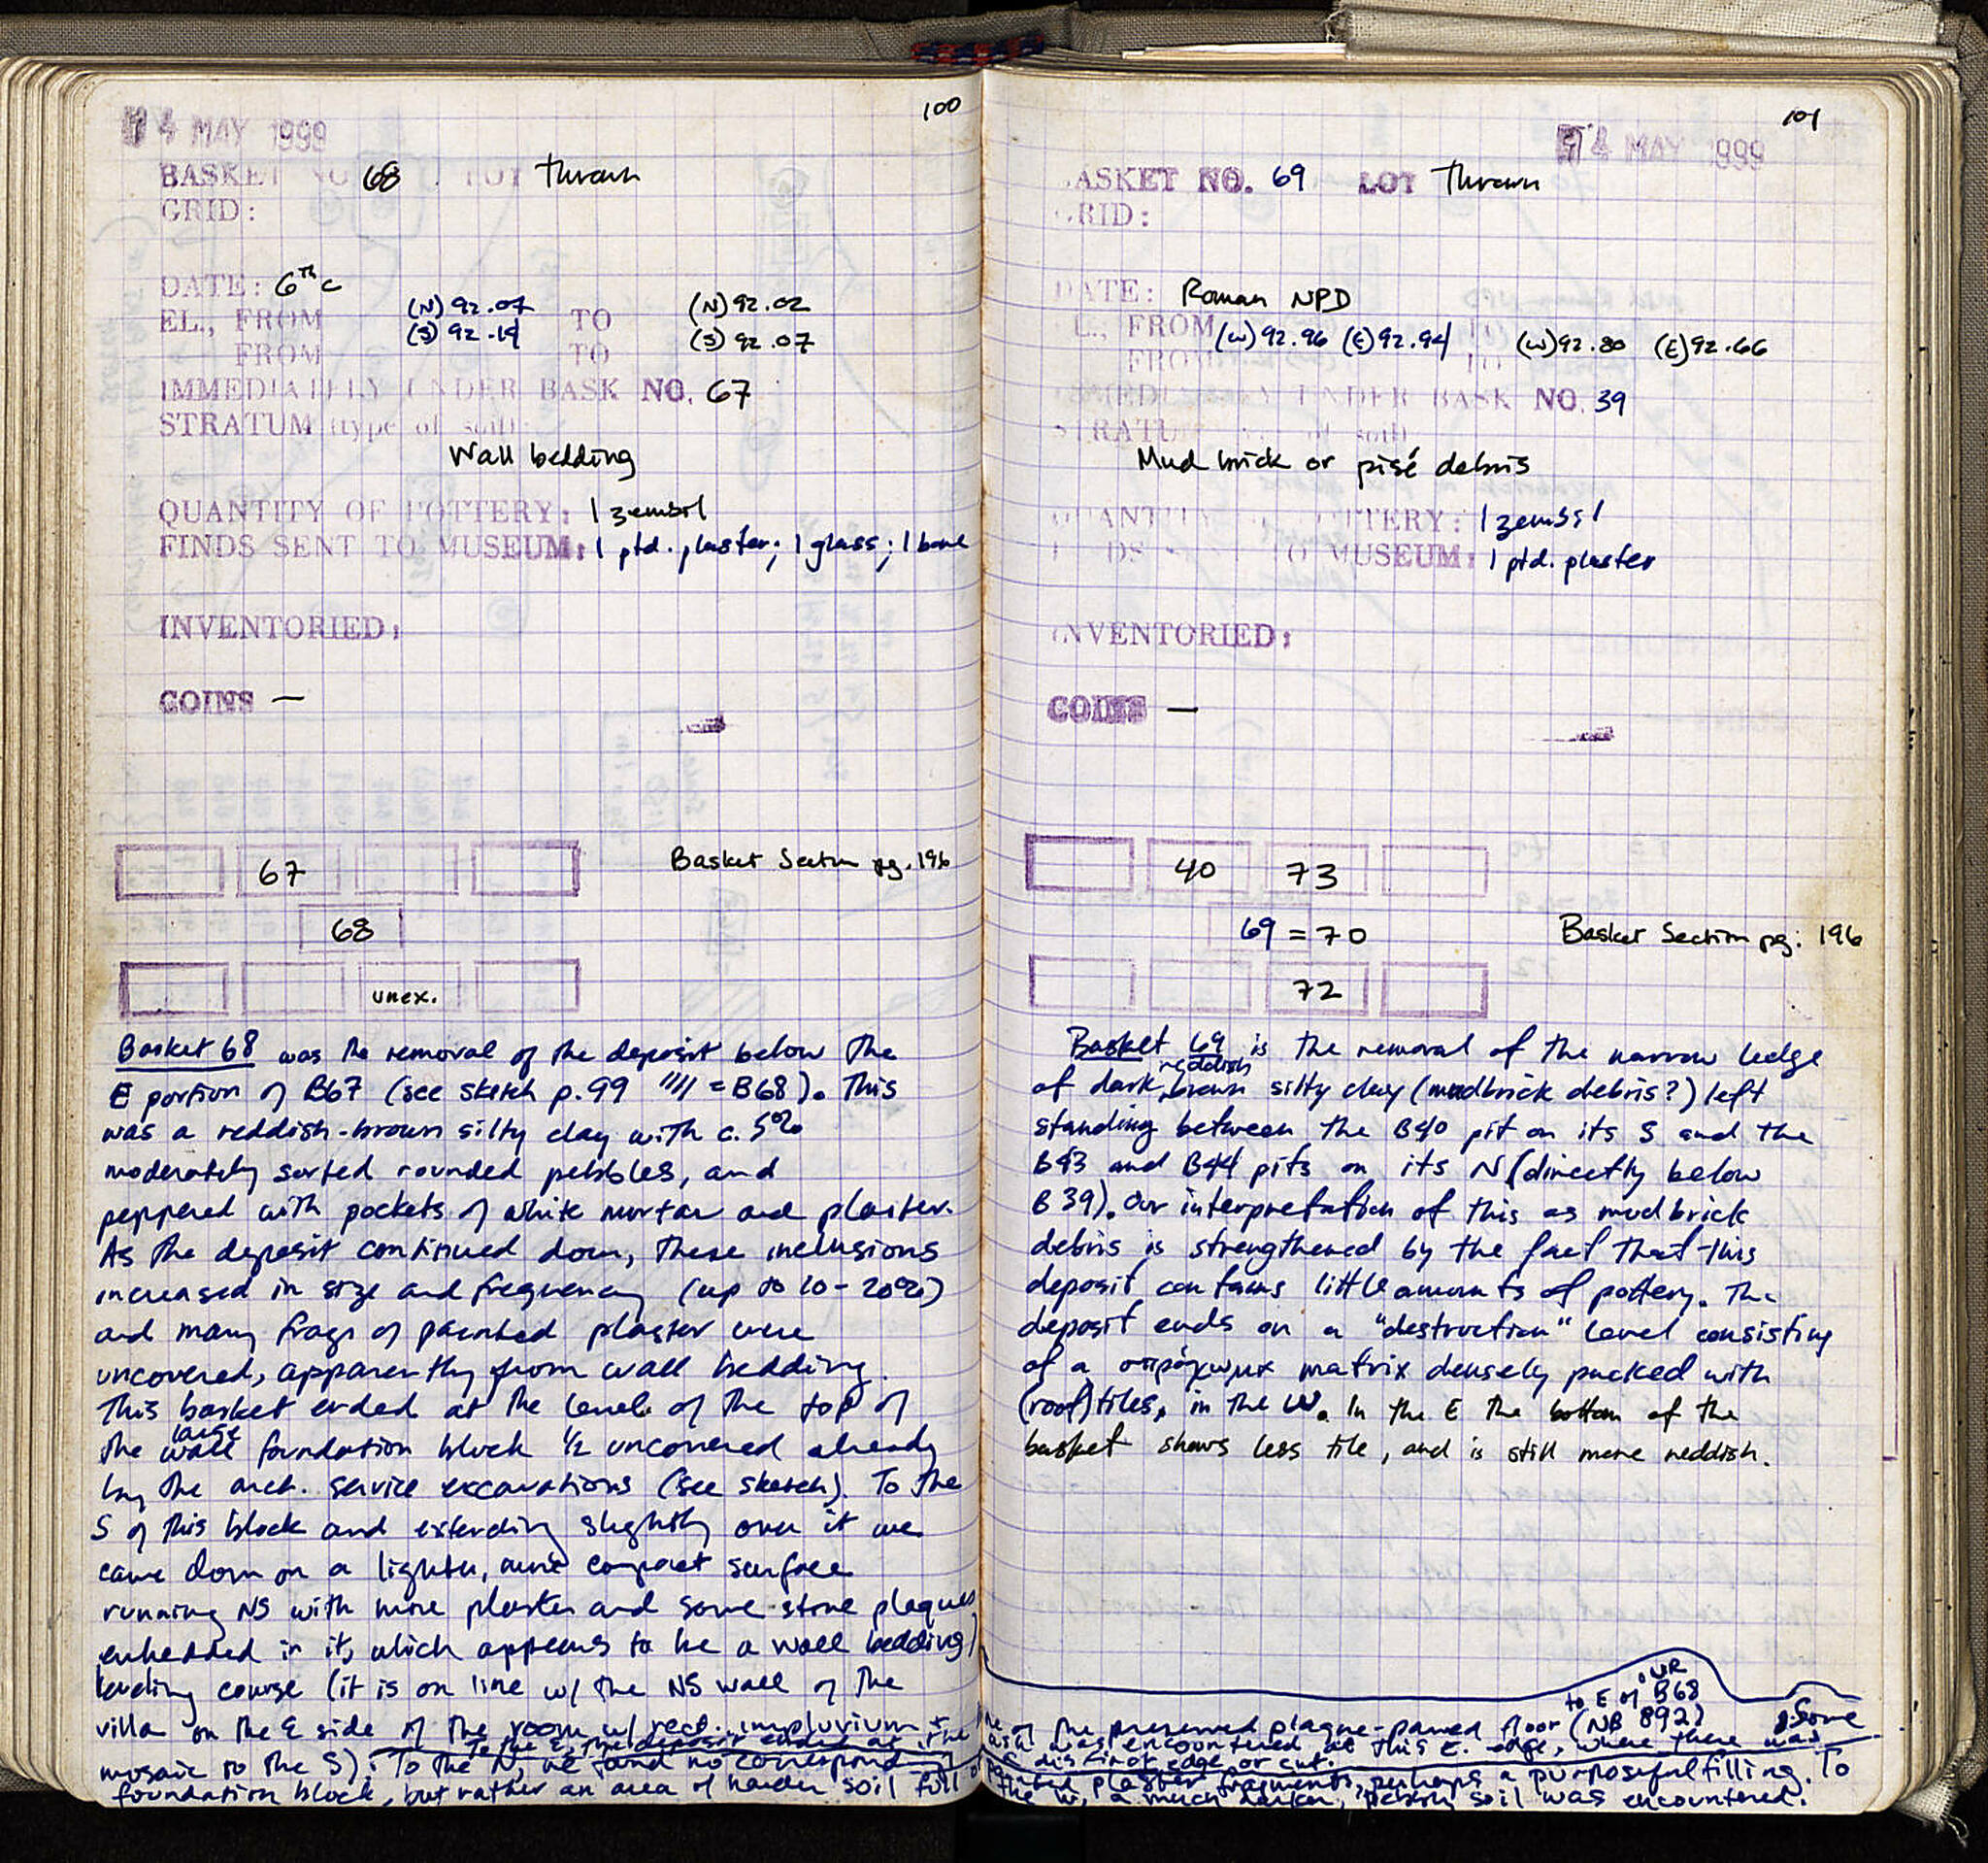 100
4 MAY 1999
BASKET NO 68 LOT Thrown
GRID:
DATE: 6th c
EL., FROM (N) 92.07 TO (N) 92.02
FROM (S) 92.19 TO (S) 92.07
IMMEDIATELY UNDER BASK NO. 67
STRATUM (type of soil):
Wall bedding
QUANTITY OF POTTERY: 1 zembil
FINDS SENT TO MUSEUM: 1 ptd. plaster; 1 glass; 1 bone
INVENTORIED:
COINS —
67
Basket Section pg. 196
68
unex.
Basket 68 was the removal of the deposit below the
E portion of B67 (see sketch p.99 //// = B68). This
was a reddish-brown silty clay with c. 5%
moderately sorted rounded pebbles, and
peppered with pockets of white mortar and plaster.
As the deposit continued down, these inclusions
increased in size and frequency (up to 10-20%)
and many frags of painted plaster were
uncovered, apparently from wall bedding.
This basket ended at the level of the top of
the large wall foundation block 1/2 uncovered already
by the arch. service excavations (see sketch). To the
S of this block and extending slightly over it we
came down on a lighter, more compact surface
running NS with more plaster and some stone plaques
embedded in it, which appears to be a wall bedding/
leveling course (it is on line w/ the NS wall of the
villa on the E side of the room w/ rect. impluvium +
mosaic to the S). To the N, we found no correspond-
To the E, the deposit ended at the
foundation block, but rather an area of harder soil full of
101
4 MAY 1999
BASKET NO. 69 LOT Thrown
GRID:
DATE: Roman NPD
EL., FROM (W) 92.96 (E) 92.94 TO (W) 92.80 (E) 92.66
FROM TO
IMMEDIATELY UNDER BASK NO. 39
STRATUM (type of soil)
Mud brick or pisé debris
QUANTITY OF POTTERY: 1 zembil
FINDS SENT TO MUSEUM: 1 ptd. plaster
INVENTORIED:
COINS —
40 73
69 = 70
Basket Section pg. 196
72
Basket 69 is the removal of the narrow ledge
of dark, reddish brown silty clay (mudbrick debris?) left
standing between the B40 pit on its S and the
B43 and B44 pits on its N (directly below
B39). Our interpretation of this as mudbrick
debris is strengthened by the fact that this
deposit contains little amounts of pottery. The
deposit ends on a "destruction" level consisting
of a στρώγωμα matrix densely packed with
(roof) tiles, in the W. In the E the bottom of the
basket shows less tile, and is still more reddish.
to E of our B68
line of the preserved plaque-paved floor (NB 892) Some
ash was encountered at this E. edge, where there was
a distinct edge or cut.
painted plaster fragments, perhaps a purposeful filling. To
the W, a much darker, pebbly soil was encountered.